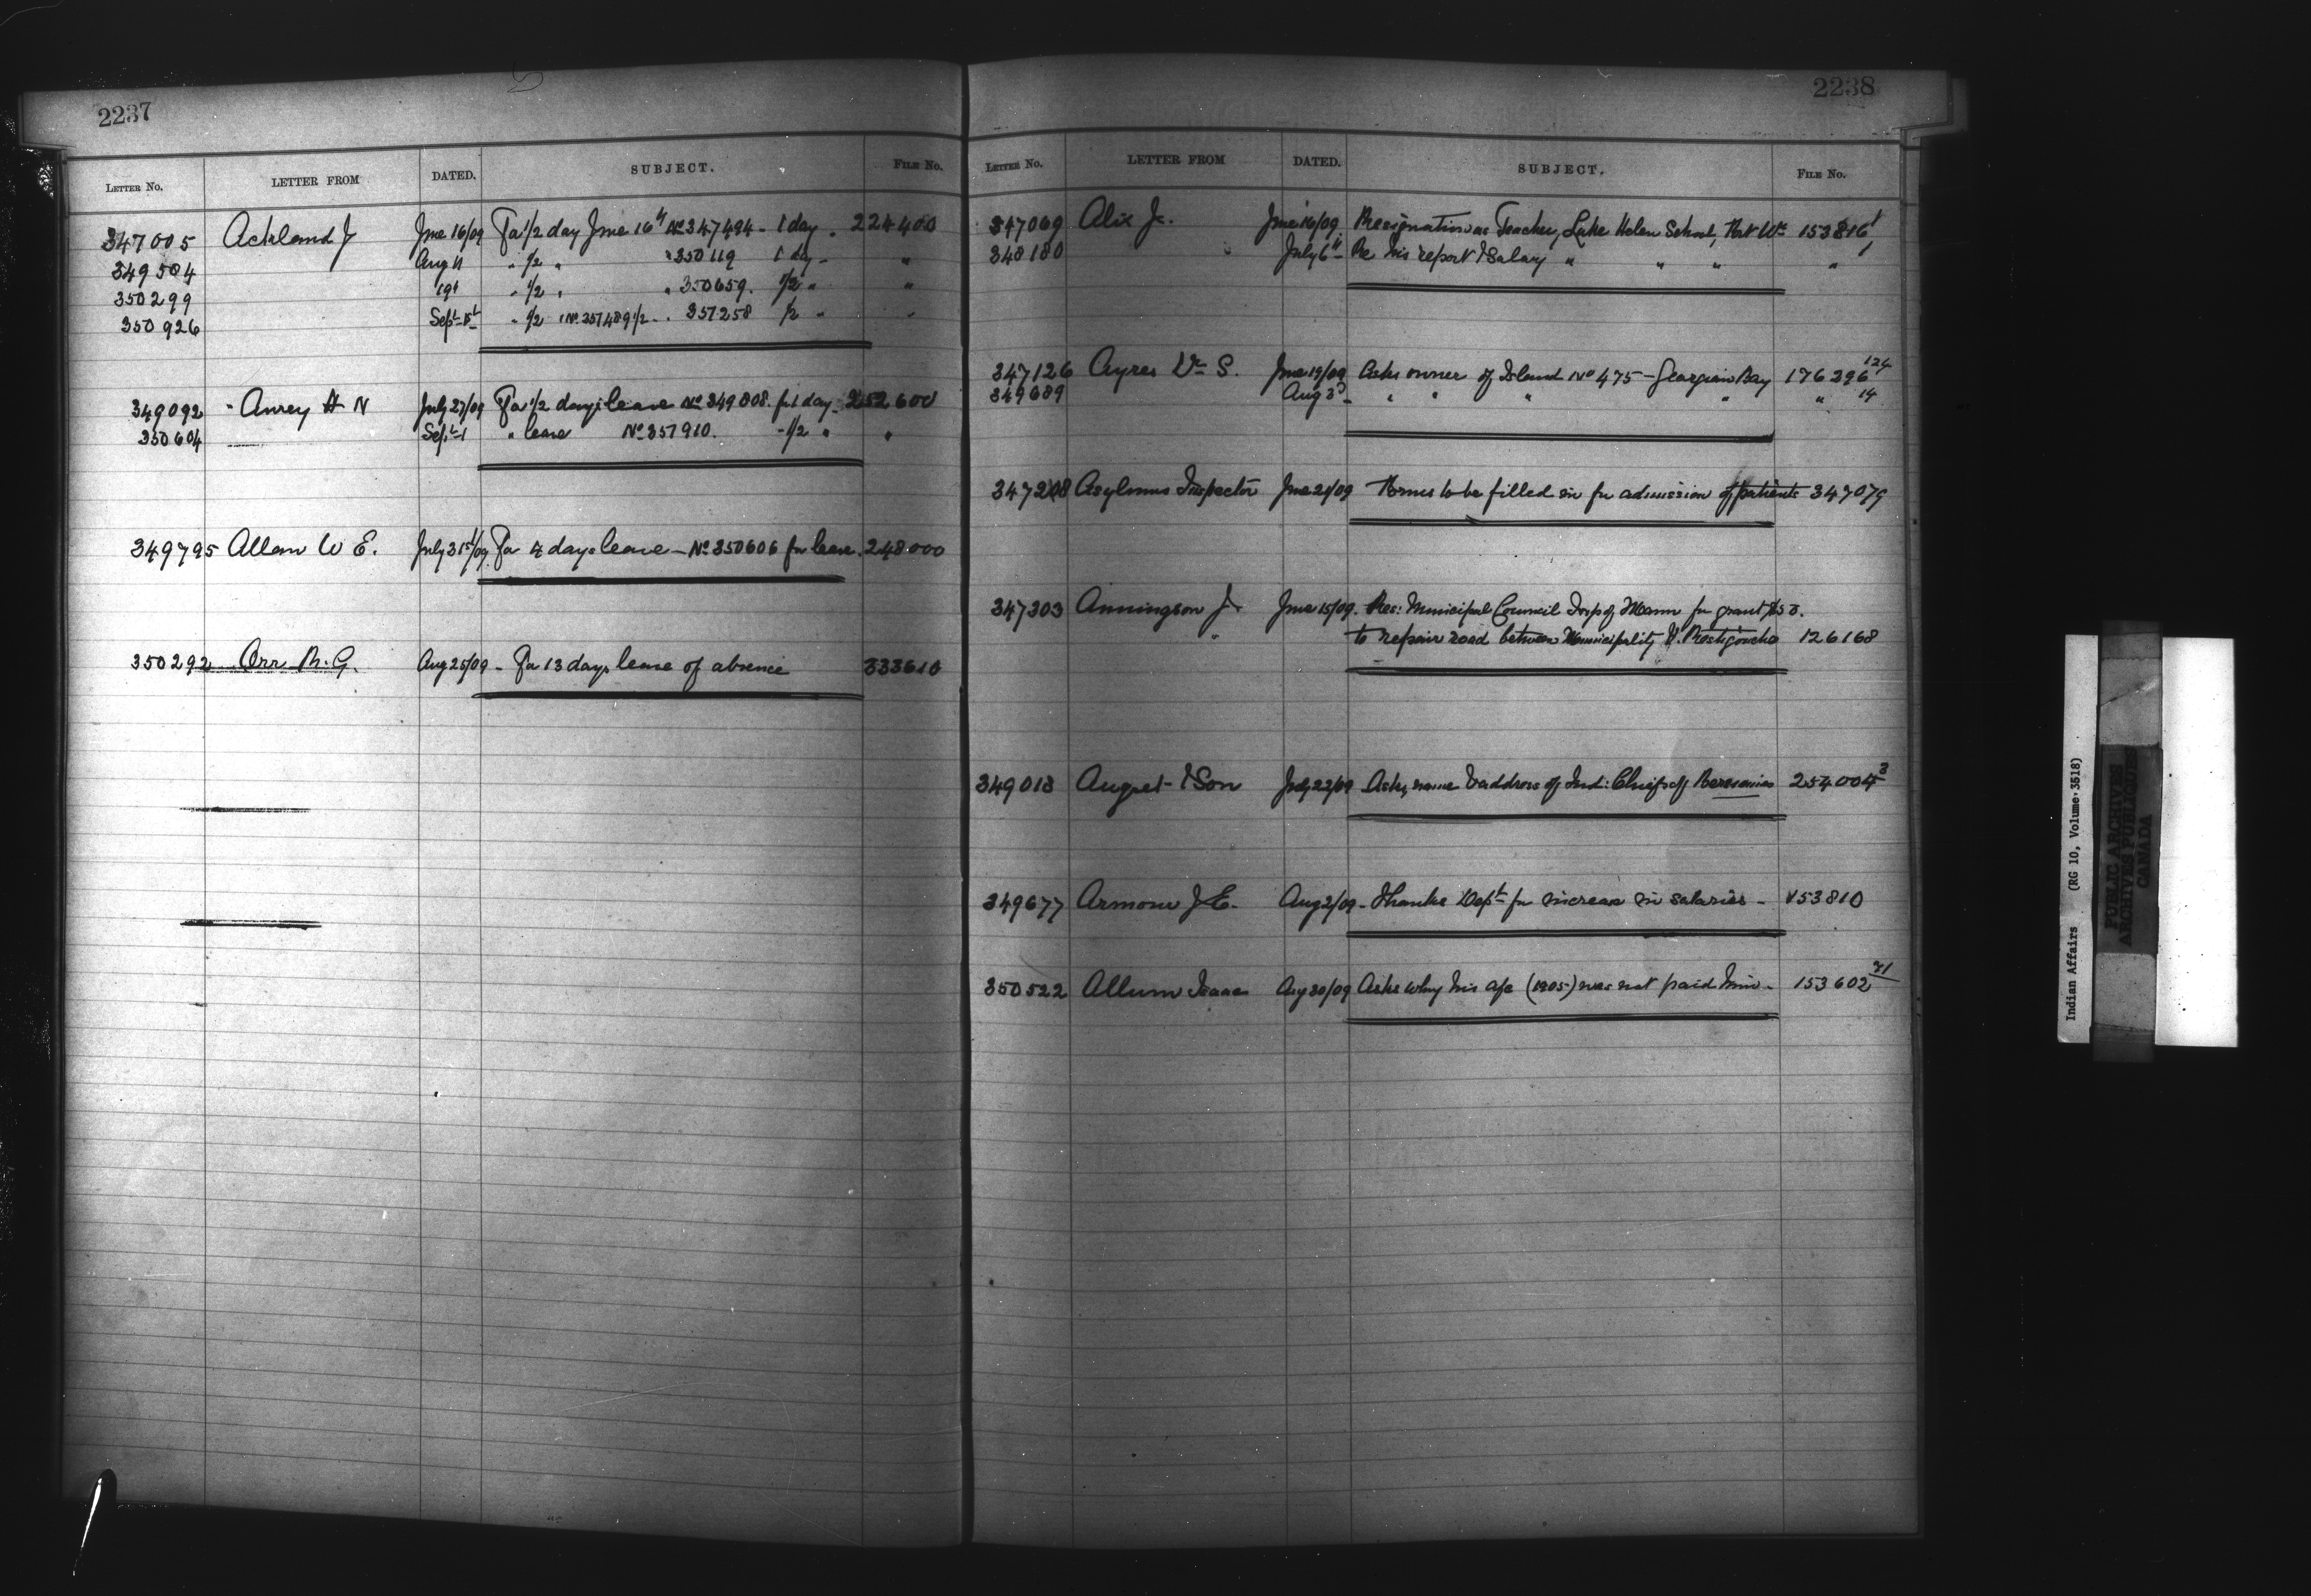 2237
LETTER No. LETTER FROM DATED. SUBJECT. FILE No.
347005 Ackland J June 16/09 Fa 1/2 day June 16th No 347494 - 1 day - 224400
349504 Aug 11 " 1/2 " " 350119 1 day - "
350299 19t " 1/2 " " 350659. 1/2 " "
350926 Sept 1st " 1/2 357258 1/2 " "
349092 " H N July 27/09 Fa 1/2 days leave No 349808. for 1 day - 252600
350604 Sept 1 " leave No 357910. - 1/2 " "
349795 Allan W E. July 31st/09 Fa 4 days leave - No 350606 for leave. 248000
350292 Orr R. G. Aug 25/09 - Fa 13 days leave of absence 333610
2238
LETTER No. LETTER FROM DATED. SUBJECT. FILE No.
347069 Alix Jr. June 16/09 Resignation as Teacher, Lake Helen School, 153816 1
348180 " July 6th - Re his report & Salary " " " " 1
347126 Ayres S. June 19/09 Asks owner of Island No 475 - Georgian Bay 176296 124
349689 Aug 3d - " " " " " 14
347208 Asylums Inspector June 21/09 Forms to be filled in for admission of patients 347079
347303 Anningson J. June 15/09. Res: Municipal Council Twp of Mann for grant $50.
" to repair road between Municipality & Restigouche 126168
349018 August & Son July 22/09 Asks name & address of Ind: Chief of Bersimis 254004 3
349677 Armour J E. Aug 2/09 - Thanks Dept for increase in salaries - 153810
350522 Allum Isaac Aug 30/09 Asks why his a/c (1905) was not paid him - 153602 21
Indian Affairs (RG 10, Volume 3518)
PUBLIC ARCHIVES
ARCHIVES PUBLIQUES
CANADA